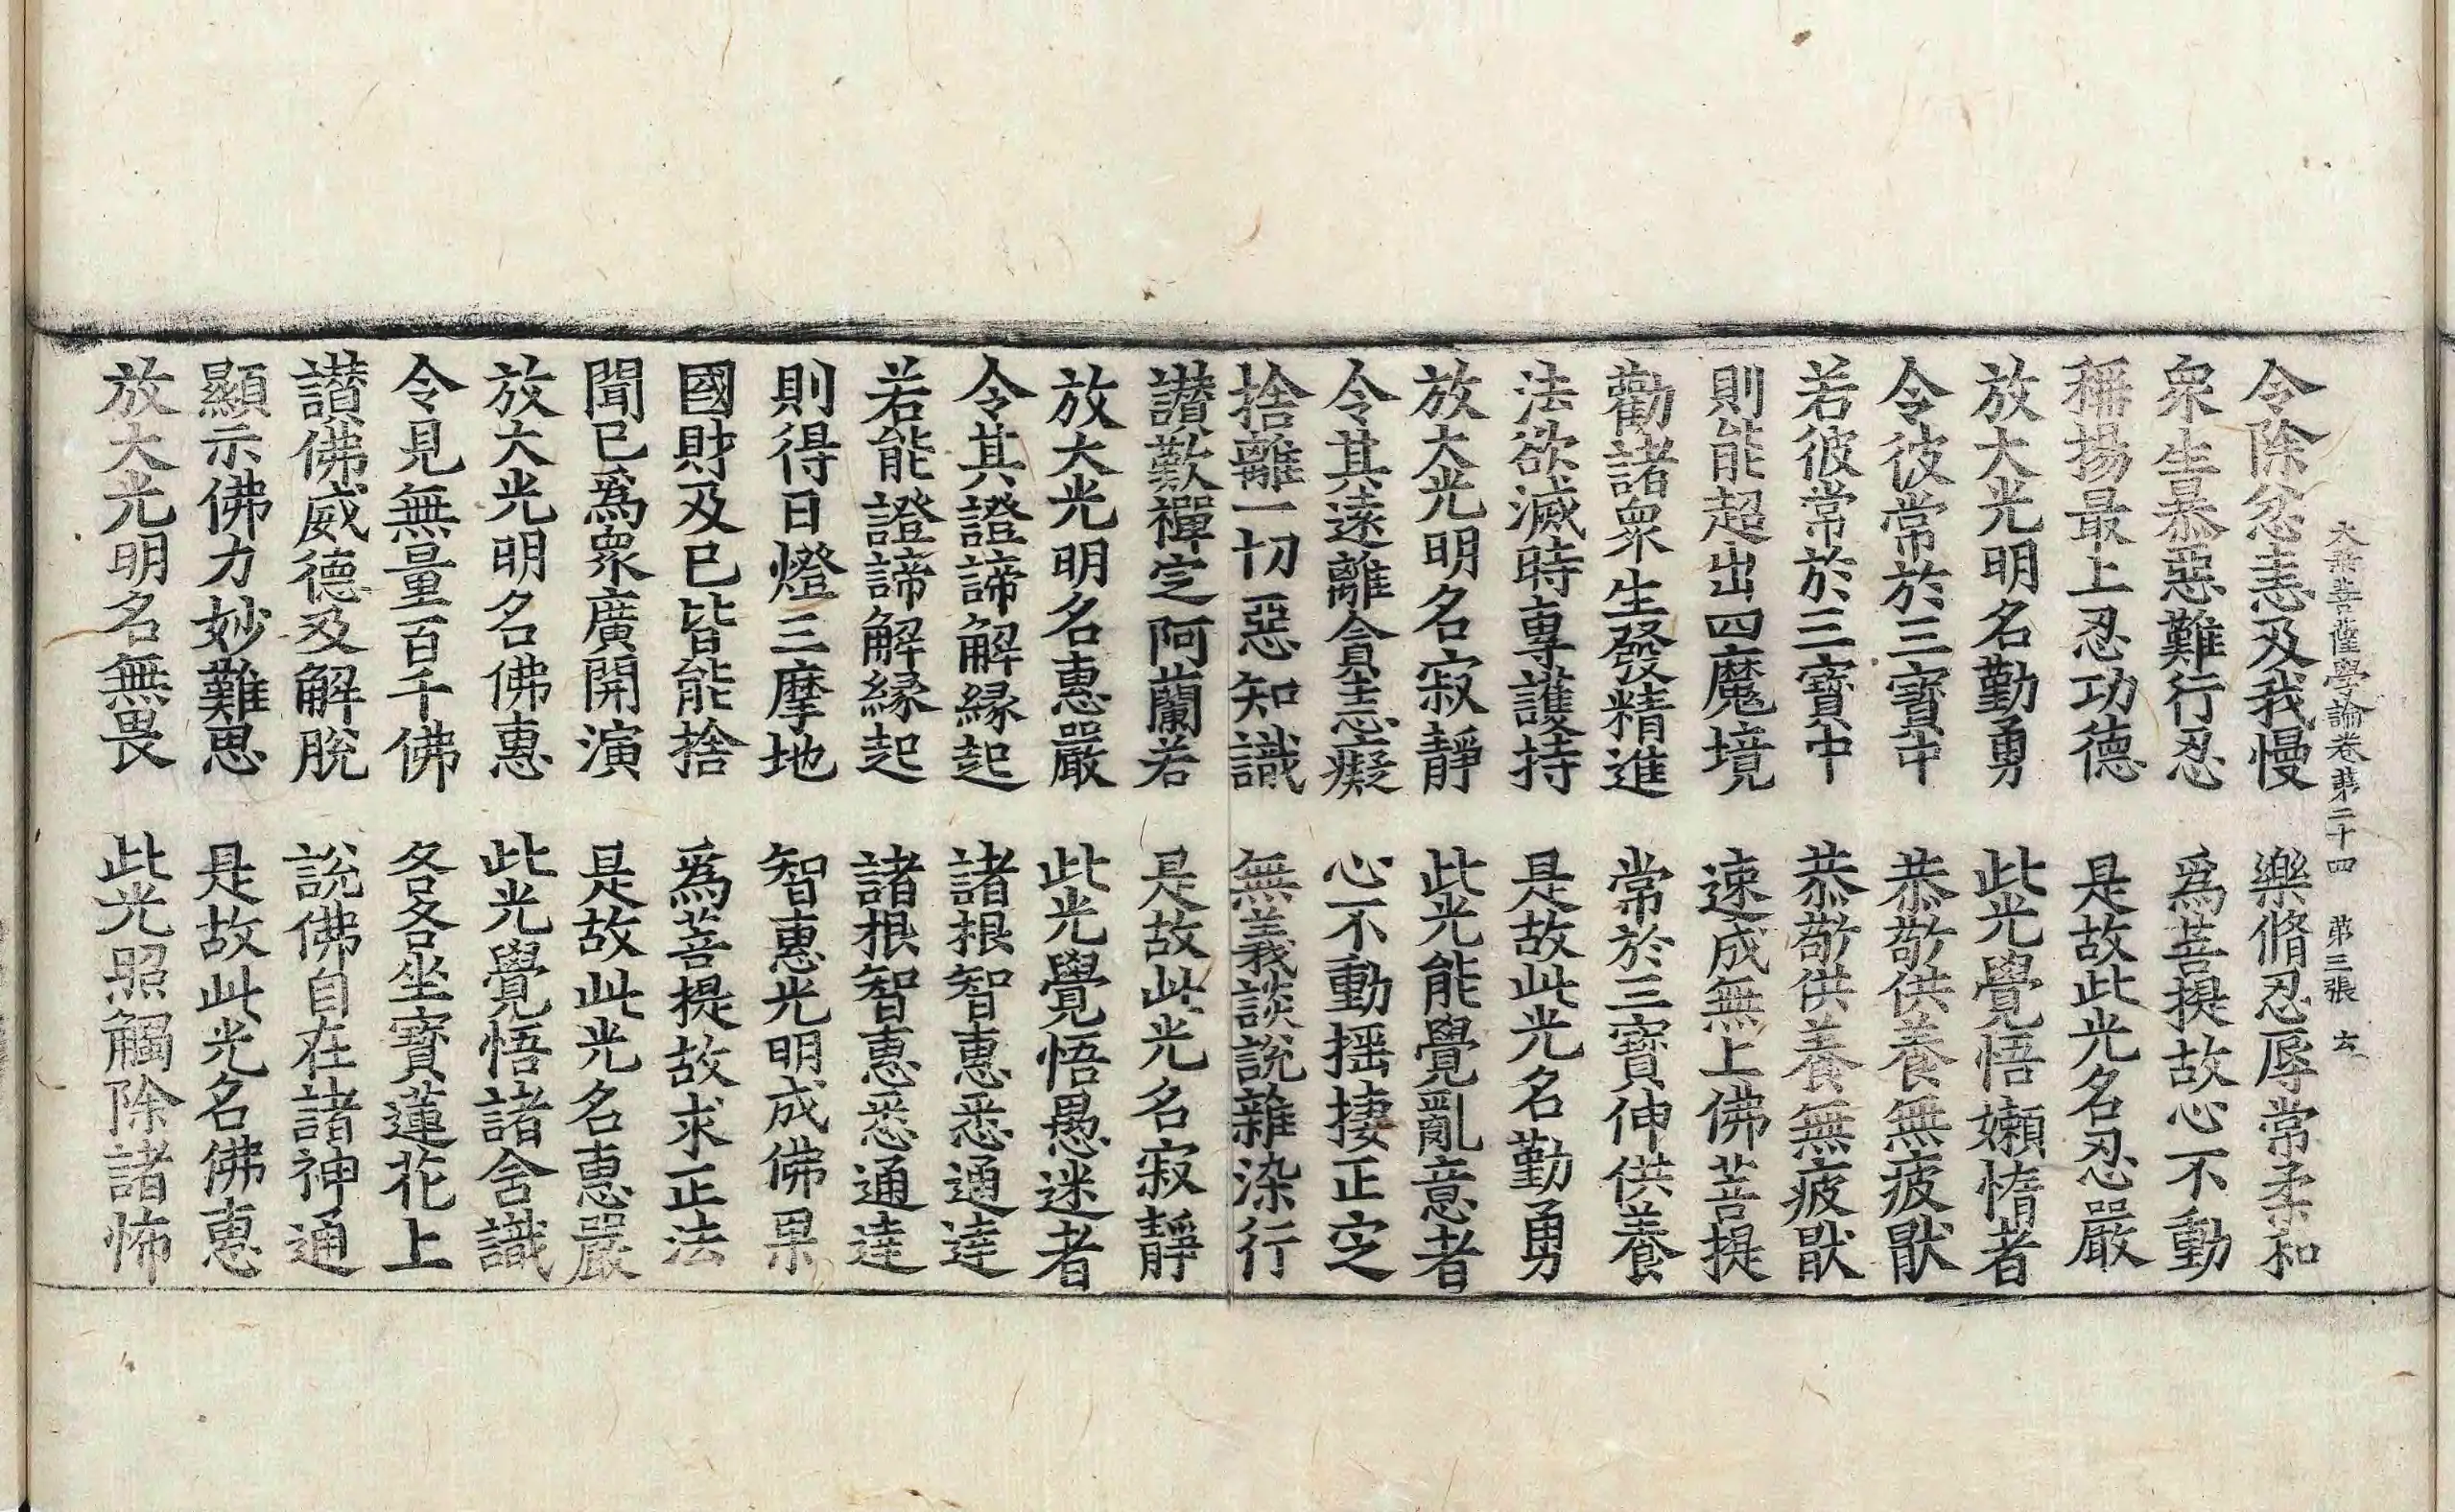 大乘菩薩學論卷第二十四 第三張 去
令除忿恚及我慢 樂脩忍辱常柔和
衆生暴惡難行忍 爲菩提故心不動
稱揚最上忍功德 是故此光名忍嚴
放大光明名勤勇 此光覺悟嬾惰者
令彼常於三寶中 恭敬供養無疲猒
若彼常於三寶中 恭敬供養無疲猒
則能超出四魔境 速成無上佛菩提
勸諸衆生發精進 常於三寶伸供養
法欲滅時專護持 是故此光名勤勇
放大光明名寂靜 此光能覺亂意者
令其遠離貪恚癡 心不動揺捿正定
捨離一切惡知識 無義談說雜染行
讃歎禪定阿蘭若 是故此光名寂靜
放大光明名惠嚴 此光覺悟愚迷者
令其證諦解縁起 諸根智惠悉通達
若能證諦解縁起 諸根智惠悉通達
則得日燈三摩地 智惠光明成佛果
國財及已皆能捨 爲菩提故求正法
聞已爲衆廣開演 是故此光名惠嚴
放大光明名佛惠 此光覺悟諸含識
令見無量百千佛 各各坐寶蓮花上
讃佛威德及解脫 說佛自在諸神通
顯示佛力妙難思 是故此光名佛惠
放大光明名無畏 此光照觸除諸怖